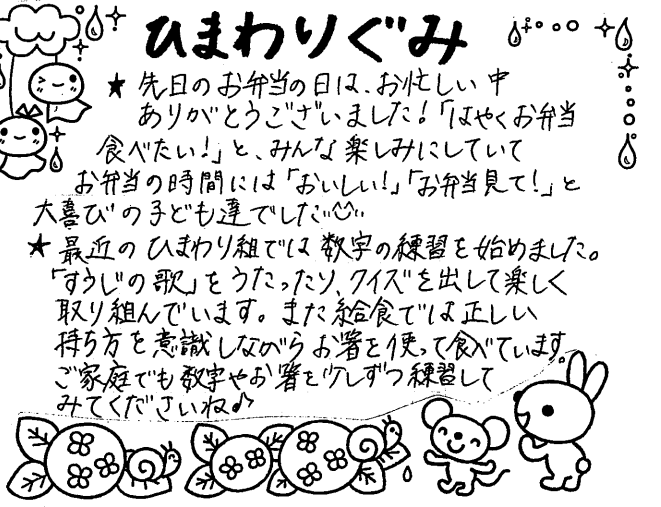 ひまわりぐみ
★ 先日のお弁当の日は、お忙しい中
ありがとうございました！「はやくお弁当
食べたい！」と、みんな楽しみにしていて
お弁当の時間には「おいしい！」「お弁当見て！」と
大喜びの子ども達でした
★ 最近のひまわり組では数字の練習を始めました。
「すうじの歌」をうたったり、クイズを出して楽しく
取り組んでいます。また給食では正しい
持ち方を意識しながらお箸を使って食べています。
ご家庭でも数字やお箸を少しずつ練習して
みてくださいね♪